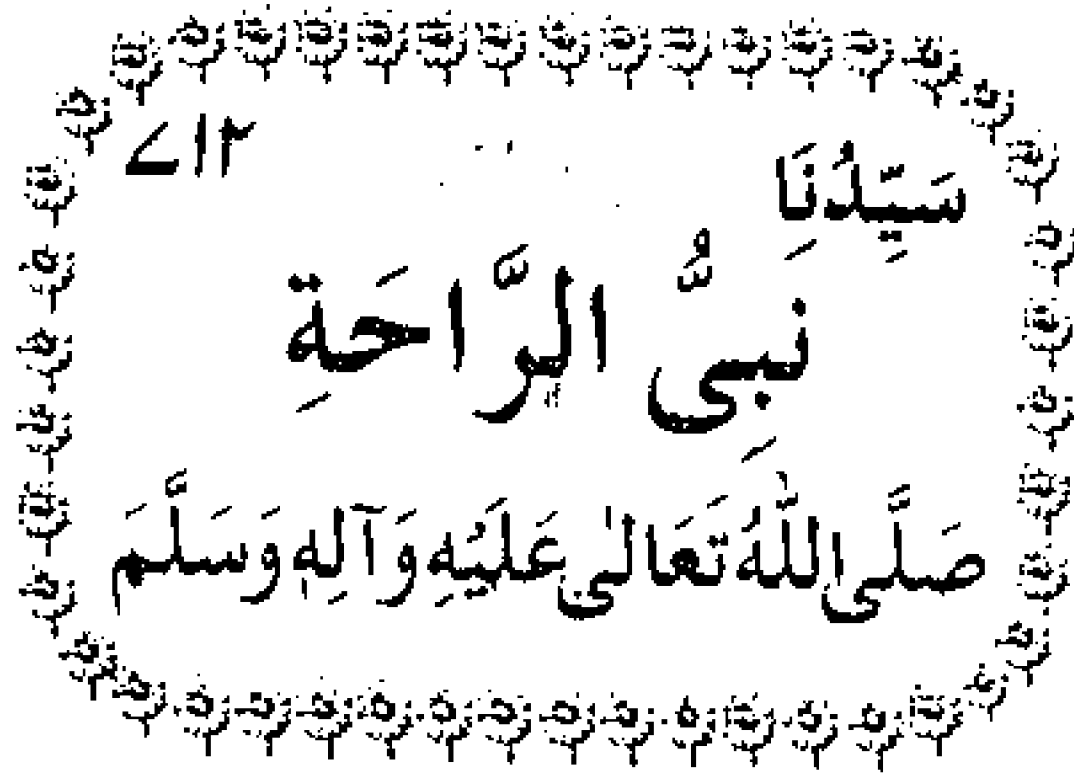 سَيِّدُنَا ۷۱۲
نَبِىُّ الرَّاحَةِ
صَلَّى اللّٰهُ تَعَالٰى عَلَيْهِ وَآلِهٖ وَسَلَّمَ